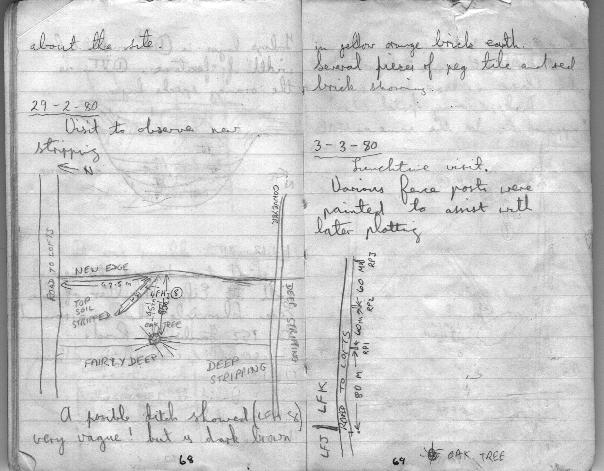 about the site.
29-2-80
Visit to observe new
stripping
N
CONVEYER
ROAD TO LOFTS
NEW EDGE
92.5m
TOP
SOIL
STRIPPED
LFH 8
OAK TREE
DEEP STRIPPING
FAIRLY DEEP
DEEP
STRIPPING
A possible ditch showed (LFH 8)
very vague! but is dark brown
68
in yellow orange brick earth.
Several pieces of peg tile and red
brick showing.
3-3-80
Lunchtime visit.
Various fence posts were
painted to assist with
later plotting
LFJ LFK
ROAD TO LOFTS
80 M 60m 60 M
RP1 RP2 RP3
OAK TREE
69